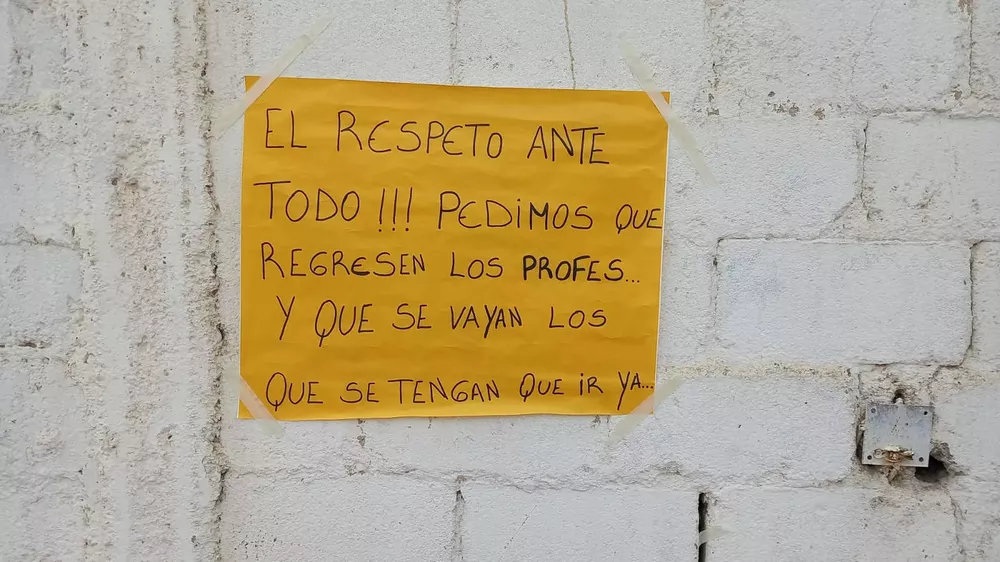 EL RESPETO ANTE
TODO!!! PEDiMOS QUE
REGRESEN LOS PROFES...
Y QUE SE VAYAN LOS
QUE SE TENGAN QUE iR YA...